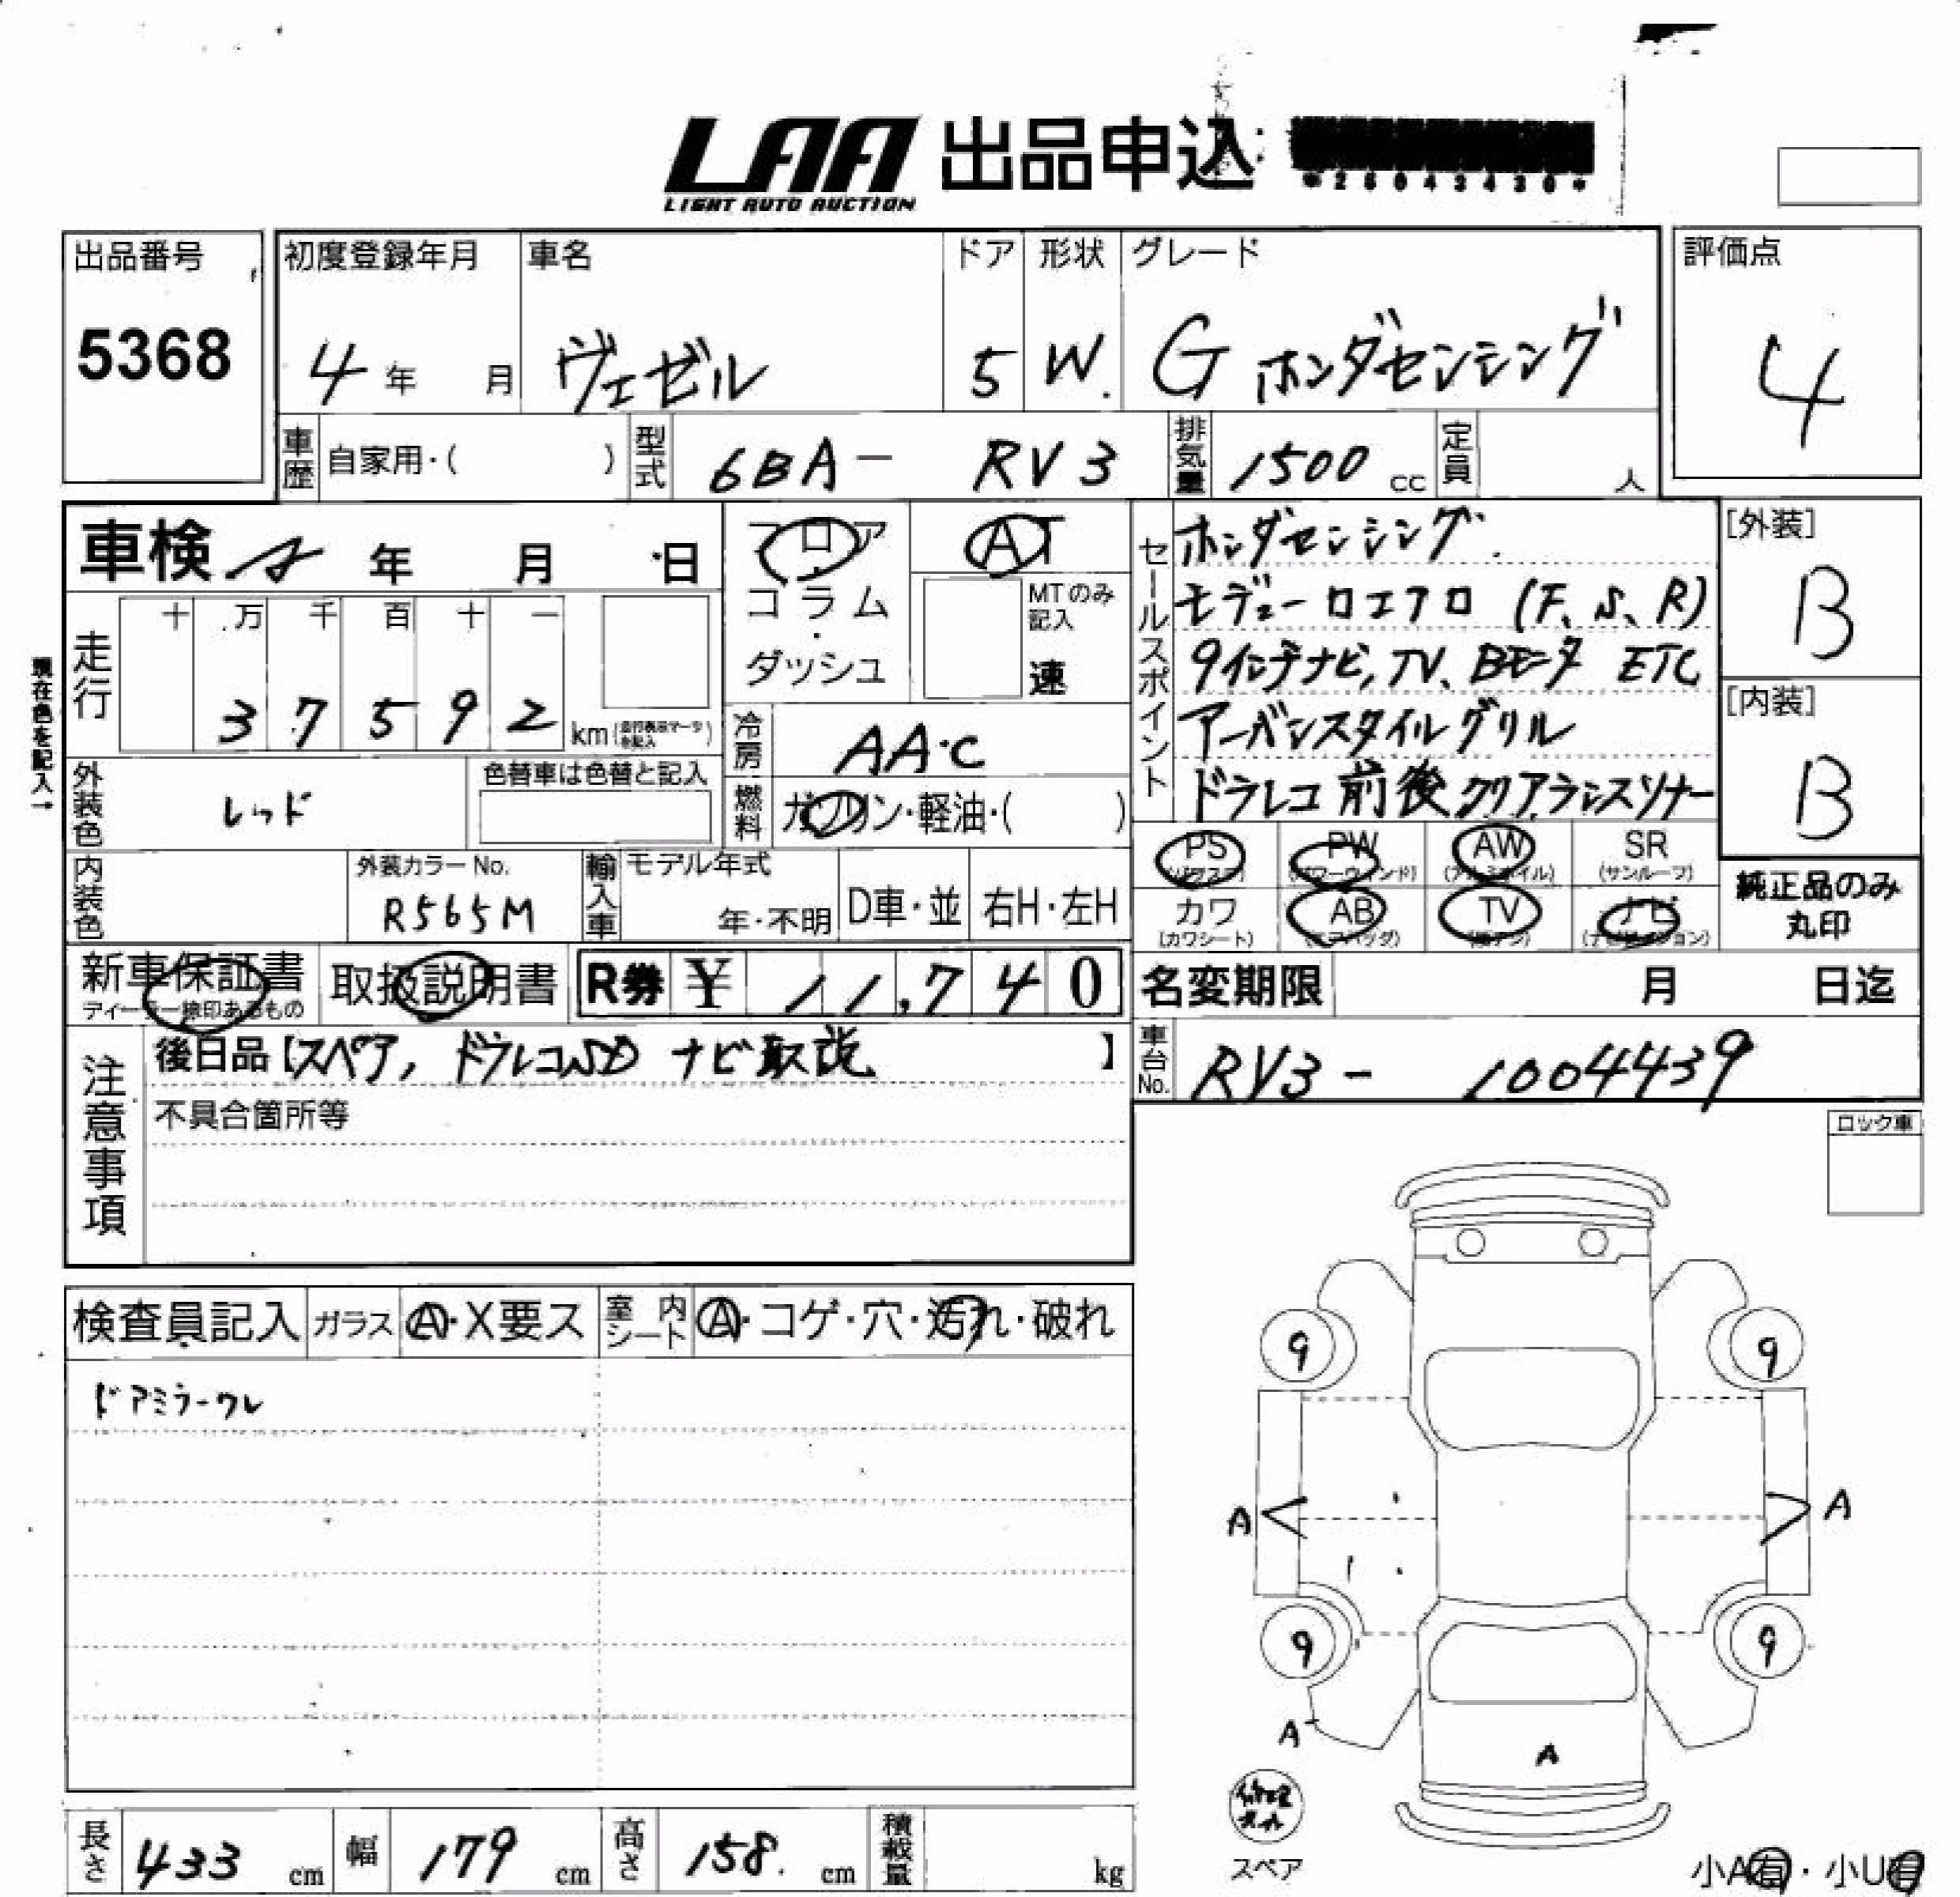 LAA 出品申込
LIGHT AUTO AUCTION
*26043430*
出品番号
5368
初度登録年月
4 年 月
車名
ヴェゼル
ドア
5
形状
W.
グレード
G ホンダセンシング
評価点
4
車歴 自家用・( )
型式 6BA- RV3
排気量 1500 cc
定員 人
車検 年 月 日
フロア・コラム・ダッシュ
AT
MTのみ記入
速
走行 十 万 千 百 十 一
3 7 5 9 2 km
現在色を記入→
外装色 レッド
色替車は色替と記入
冷房 AA・C
燃料 ガソリン・軽油・( )
セールスポイント
ホンダセンシング
モデューロエアロ (F、S、R)
9インチナビ,TV、Bモニタ ETC
アーバンスタイルグリル
ドラレコ前後クリアランスソナー
[外装]
B
[内装]
B
内装色
外装カラーNo.
R565M
輸入車 モデル年式
年・不明 D車・並 右H・左H
PS PW AW SR
(パワステ) (パワーウィンド) (アルミホイル) (サンルーフ)
カワ AB TV ナビ
(カワシート) (エアバッグ)
純正品のみ
丸印
新車保証書
ディーラー捺印あるもの
取扱説明書
R券 ¥ 11,740
名変期限 月 日迄
車台No. RV3- 1004439
注意事項
後日品【スペア, ドラレコSD ナビ取説 】
不具合箇所等
ロック車
検査員記入 ガラス A・X要ス 室内シート A・コゲ・穴・汚れ・破れ
ドアミラーワレ
9 9
A A
9 9
A A
スペア
小A有・小U有
長さ 433 cm 幅 179 cm 高さ 158. cm 積載量 kg